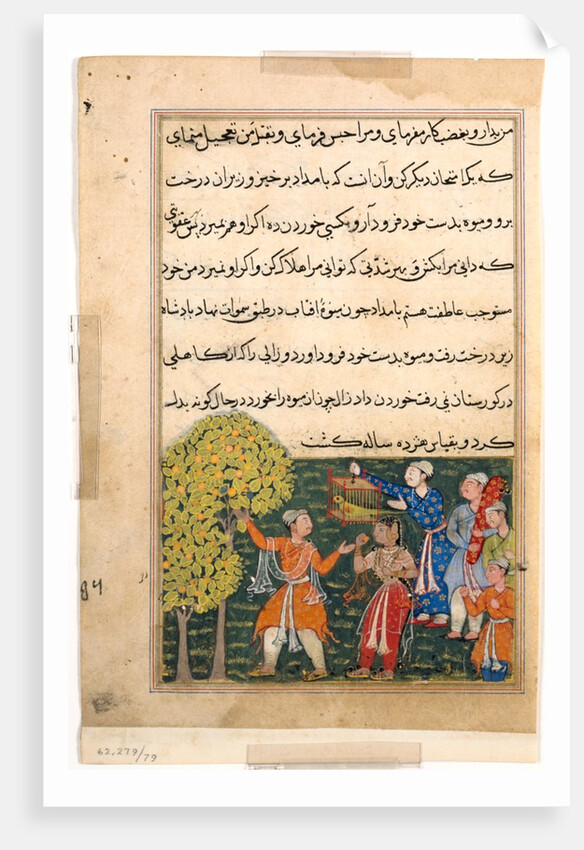 من بدار و بغضب کار مفرمای و مرا حبس فرمای و بقتل من تعجیل منمای
که یک امتحان دیکر کن و آن انست که بامداد برخیز و زیر ان درخت
برو و میوه بدست خود فرود آر و بکسی خوردن ده اکر او هم بمیرد پس عقوبتی
که دانی مرا بکش و بهر شدتی که توانی مرا هلاک کن و اکر او نمیرد من خود
مستوجب عاطفت هستم بامداد چون میوهٔ افتاب در طبق سموات نهاد پادشاه
زیر درخت رفت و میوه بدست خود فرود اورد و زالی را که از کاهلی
در کورستان می رفت خوردن داد زال چون ان میوه را بخورد در حال کونه بدل
کرد و بقیاس هژده ساله کشت
62.279/79